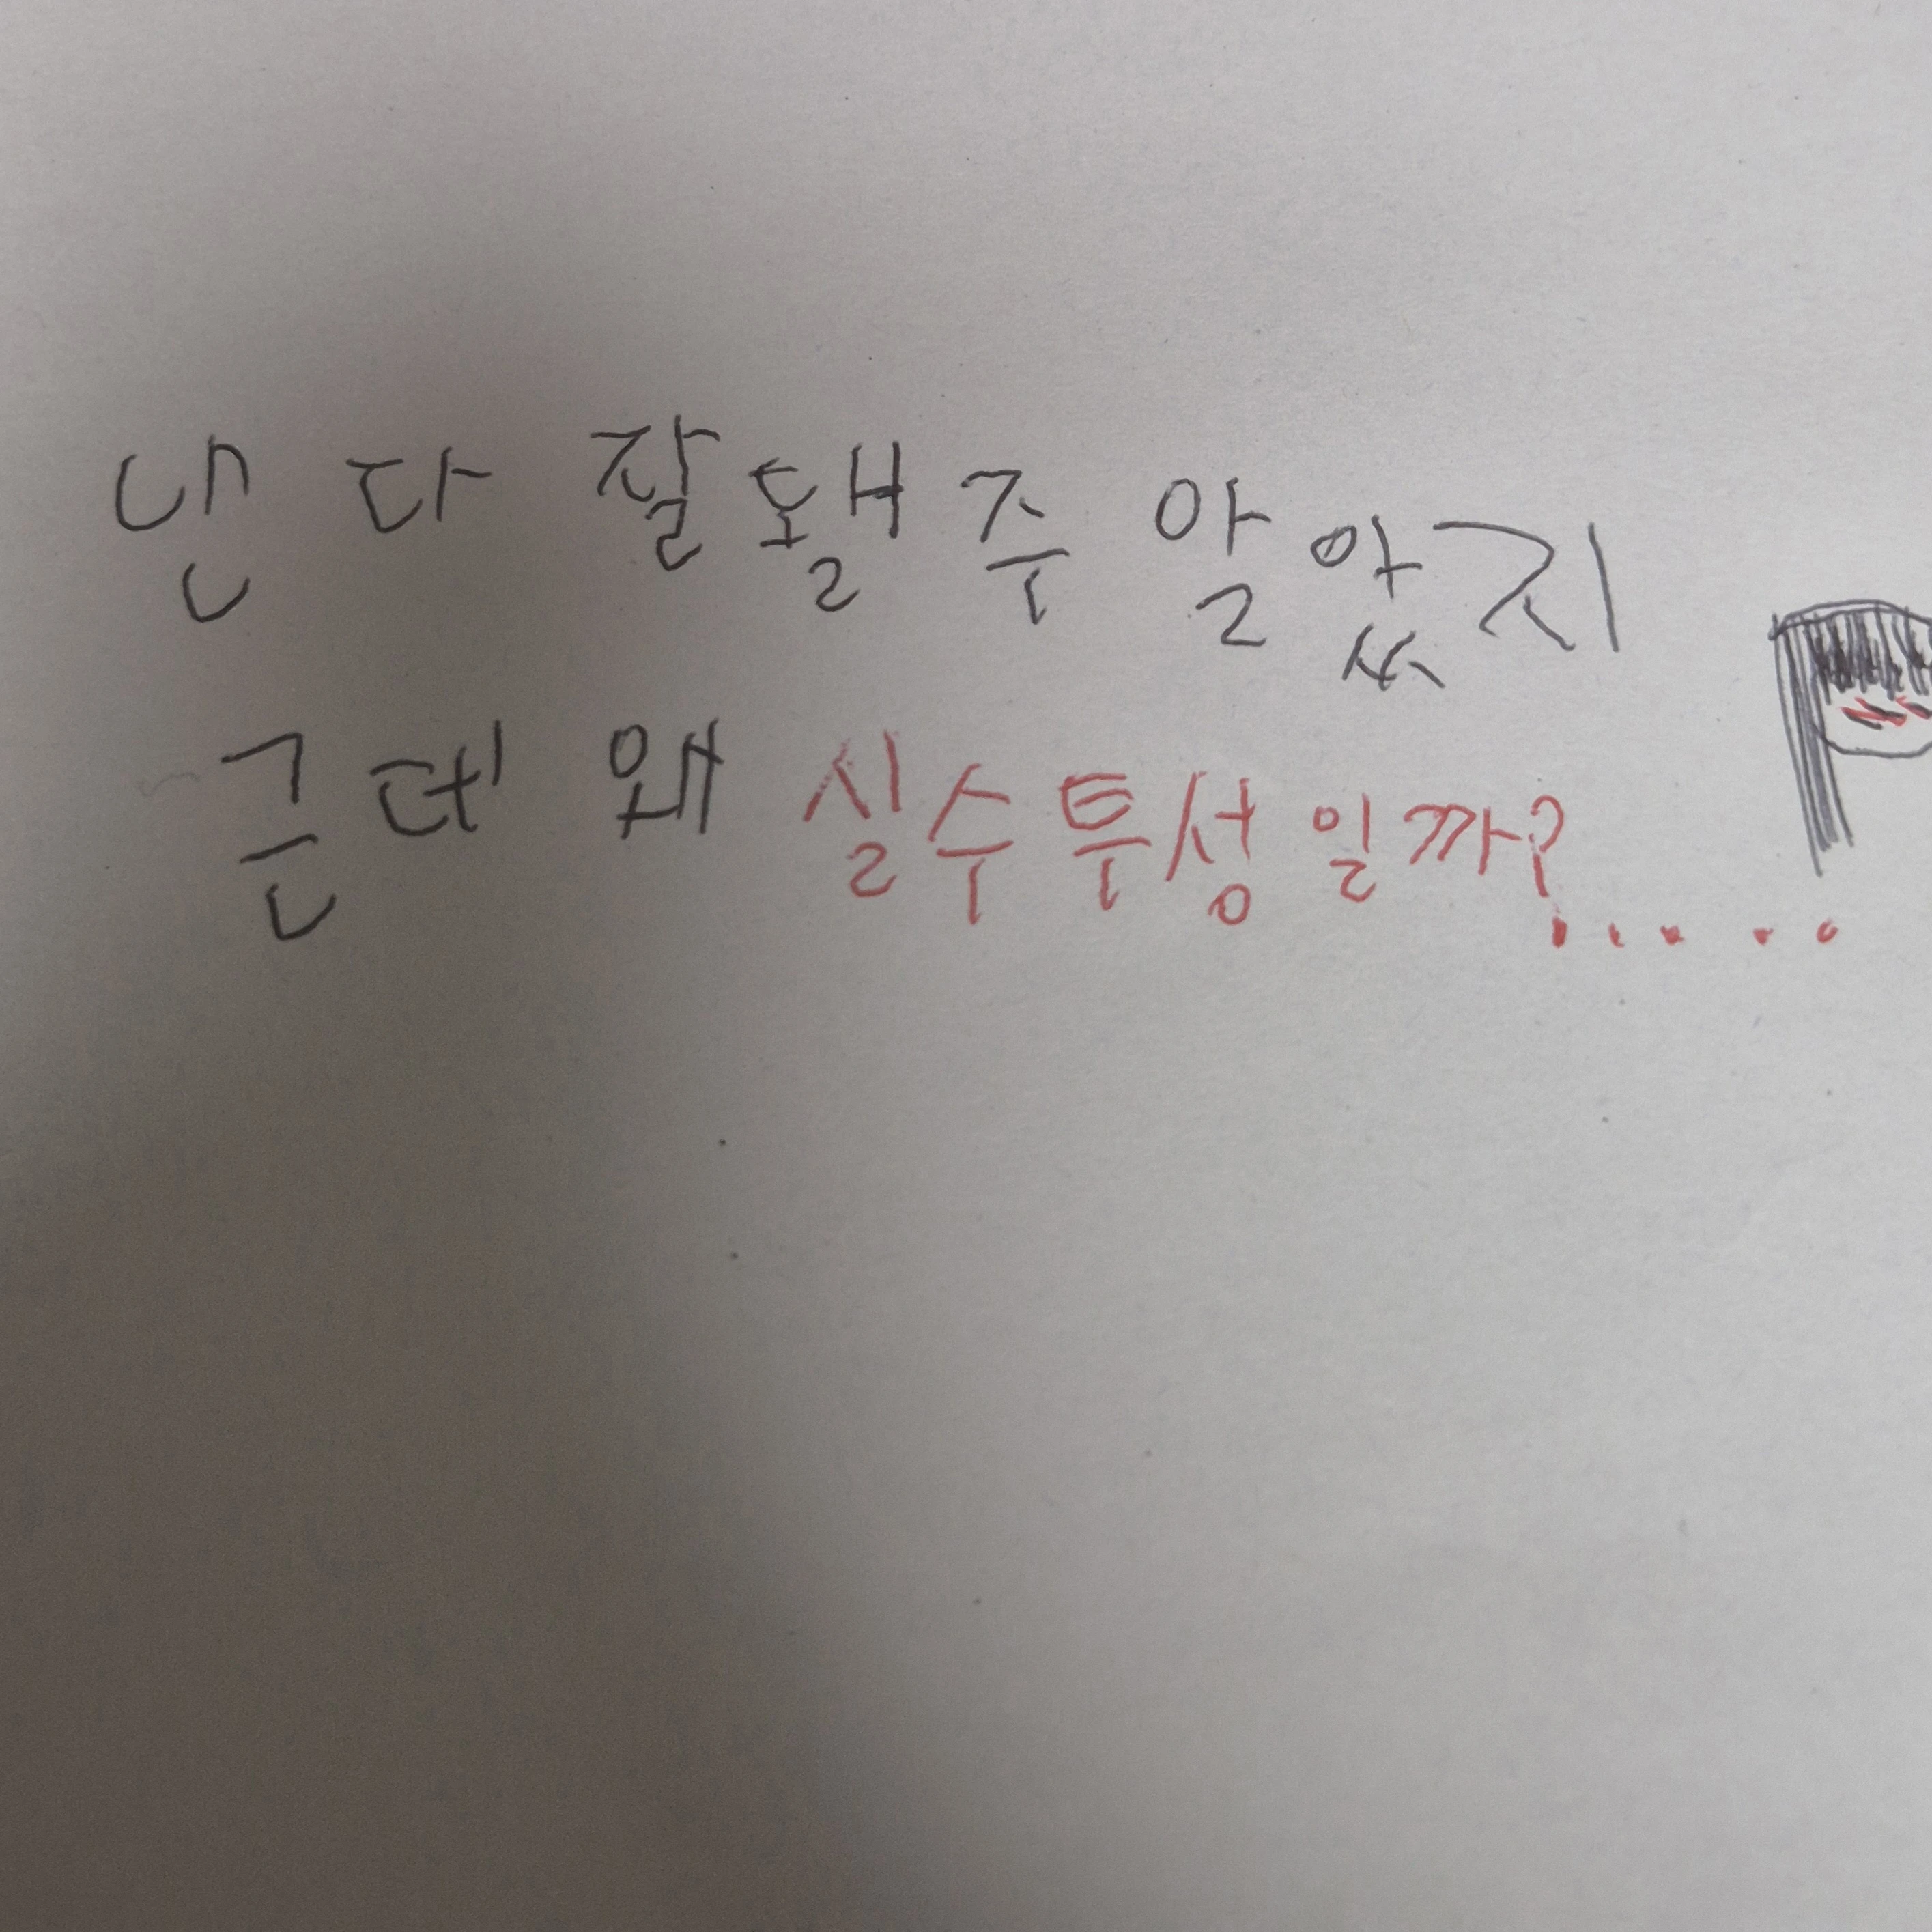 낸 다 잘됄주 알았지
근데 왜 실수투성일까?.....